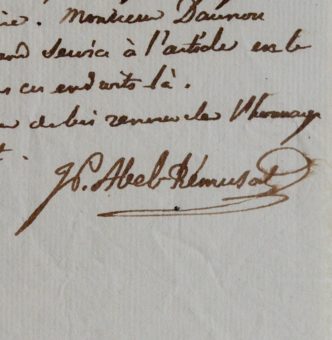 ie. Monsieur Daunou
end service à l'article en le
s ces endroits là.
de lui renouveler l'hommage
t.
JP. Abel-Rémusat